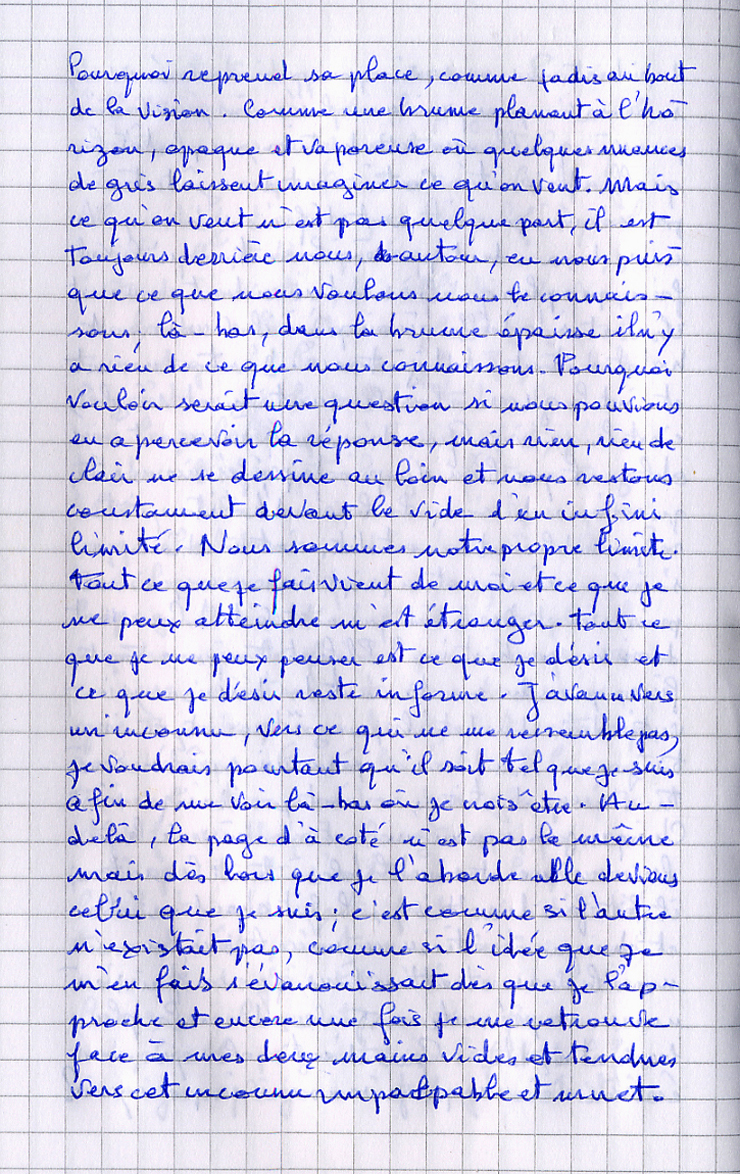 Pourquoi reprend sa place, comme jadis au bout
de la vision. Comme une brume planant à l'ho
rizon, opaque et vaporeuse où quelques nuances
de gris laissent imaginer ce qu'on veut. Mais
ce qu'on veut n'est pas quelque part, il est
toujours derrière nous, autour, en nous puis
que ce que nous voulons nous le connais-
sons, là-bas, dans la brume épaisse il n'y
a rien de ce que nous connaissons. Pourquoi
vouloir serait une question si nous pouvions
en apercevoir la réponse, mais rien, rien de
clair ne se dessine au loin et nous restons
constament devant le vide d'un infini
limité. Nous sommes notre propre limite.
Tout ce que je fais vient de moi et ce que je
ne peux atteindre m'est étranger. tout ce
que je ne peux penser est ce que je désir et
ce que je désir reste informe. J'avance vers
un inconnu, vers ce qui ne me ressemble pas,
je voudrais pourtant qu'il soit tel que je suis
afin de me voir là-bas où je crois être. Au-
delà, la page d'à coté n'est pas la même
mais dès lors que je l'aborde elle deviens
celui que je suis; c'est comme si l'autre
n'existait pas, comme si l'idée que je
m'en fais s'évanouissait dès que je l'ap-
proche et encore une fois je me retrouve
face à mes deux mains vides et tendues
vers cet inconnu impalpable et muet.